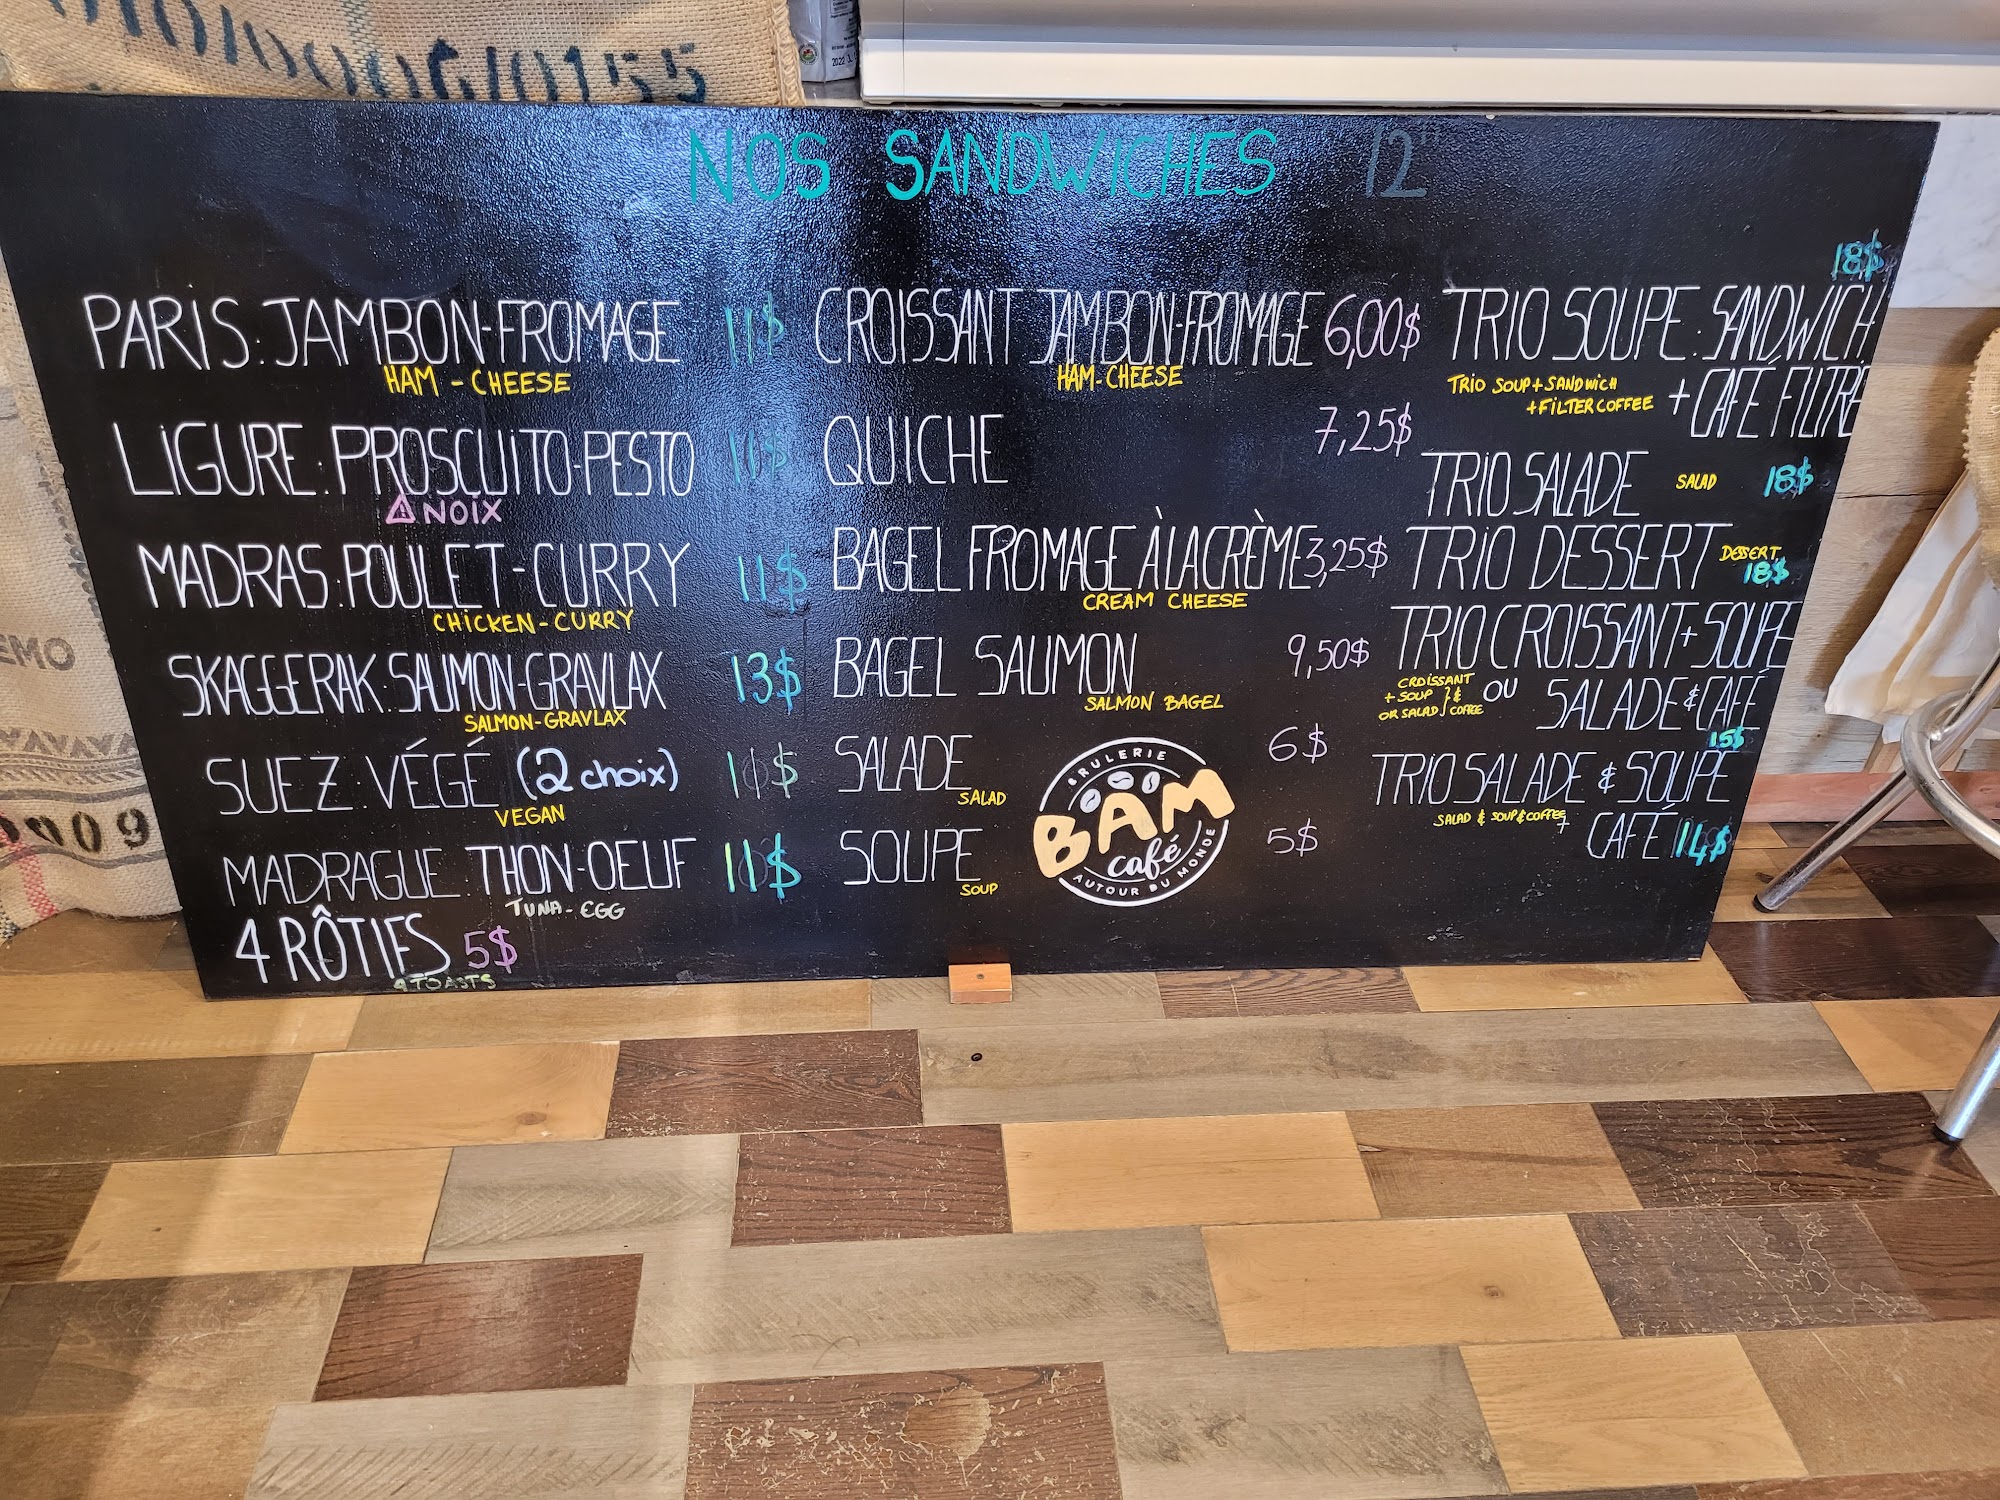 0155
2022
NOS SANDWICHES 12"
PARIS: JAMBON-FROMAGE 11$
HAM - CHEESE
LIGURE: PROSCUITO-PESTO
⚠ NOIX
MADRAS: POULET-CURRY 11$
CHICKEN-CURRY
SKAGGERAK: SAUMON-GRAVLAX 13$
SALMON-GRAVLAX
SUEZ: VÉGÉ (2 choix) 10$
VEGAN
MADRAGUE: THON-OEUF 11$
TUNA-EGG
4 RÔTIES 5$
4 TOASTS
CROISSANT JAMBON-FROMAGE 6,00$
HAM-CHEESE
QUICHE 7,25$
BAGEL FROMAGE À LA CRÈME 3,25$
CREAM CHEESE
BAGEL SAUMON 9,50$
SALMON BAGEL
SALADE 6$
SALAD
SOUPE 5$
SOUP
BRULERIE
BAM
café
AUTOUR DU MONDE
18$
TRIO SOUPE: SANDWICH
+ CAFÉ FILTRE
TRIO SOUP + SANDWICH
+ FILTER COFFEE
TRIO SALADE SALAD 18$
TRIO DESSERT DESSERT
18$
TRIO CROISSANT + SOUPE
OU SALADE & CAFÉ
CROISSANT
+ SOUP } &
OR SALAD } COFFEE
15$
TRIO SALADE & SOUPE
+ CAFÉ 14$
SALAD & SOUP & COFFEE
EMO
0009